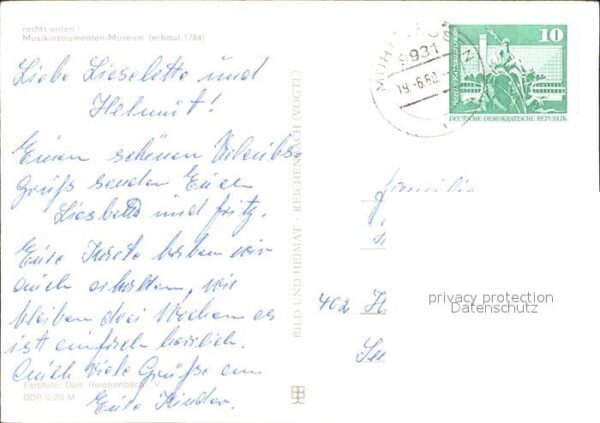 rechts unten
Musikinstrumenten-Museum (erbaut 1784)
Liebe Lieselotte und
Helmut!
Einen schönen Urlaubs
grüß senden Euch
Liesbeth und Fritz.
Eure Karte haben wir
auch erhalten, wir
bleiben drei Wochen es
ist einfach herrlich.
Auch viele Grüße an
Eure Kinder.
Farbfoto: Darr, Reichenbach i. V.
DDR 0 20 M
BILD UND HEIMAT · REICHENBACH (VOGTL)
9931
19.-6.80
10
DEUTSCHE DEMOKRATISCHE REPUBLIK
Familie
402 H
privacy protection
Datenschutz